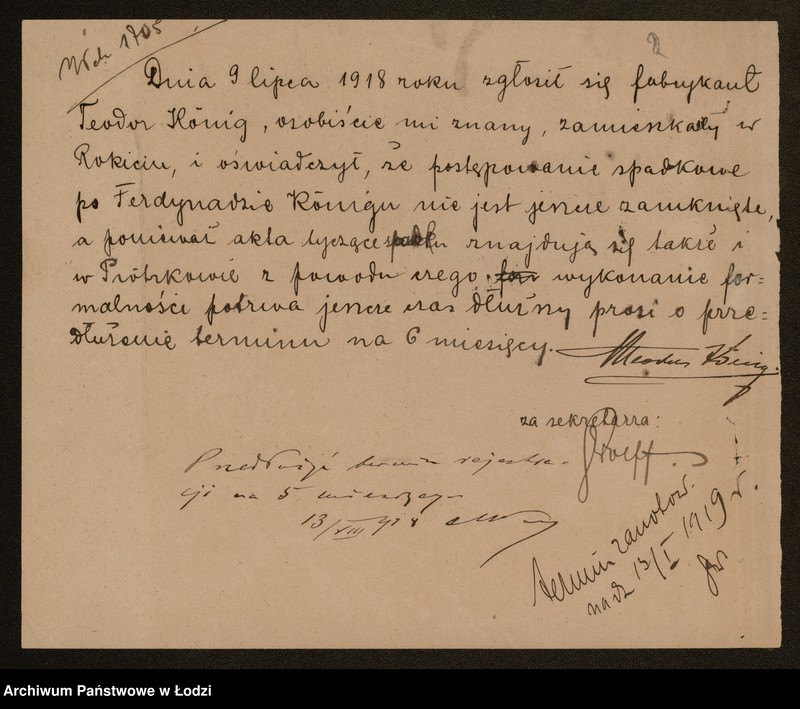 1705
2
Dnia 9 lipca 1918 roku zgłosił się fabrykant
Teodor König, osobiście mi znany, zamieszkały w
Rokiciu, i oświadczył, że postępowanie spadkowe
po Ferdynadzie Königu nie jest jeszcze zamknięte,
a ponieważ akta tyczące spadku znajdują się także i
w Piotrkowie z powodu czego wykonanie for=
malności potrwa jeszcze czas dłuższy prosi o prze=
dłużenie terminu na 6 miesięcy.
Theodor König.
za sekretarza:
Przedłużyć termin rejestra-
cji na 5 miesięcy
13/VIII 918
termin zanotow.
na d. 13/I 1919 r.
Archiwum Państwowe w Łodzi